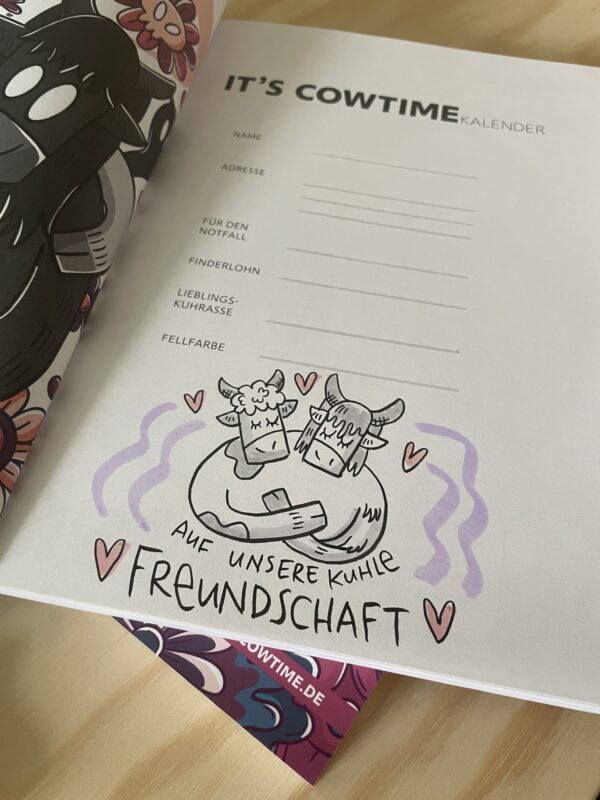 IT'S COWTIME KALENDER
NAME
ADRESSE
FÜR DEN
NOTFALL
FINDERLOHN
LIEBLINGS-
KUHRASSE
FELLFARBE
AUF UNSERE KUHLE
FREUNDSCHAFT
COWTIME.DE